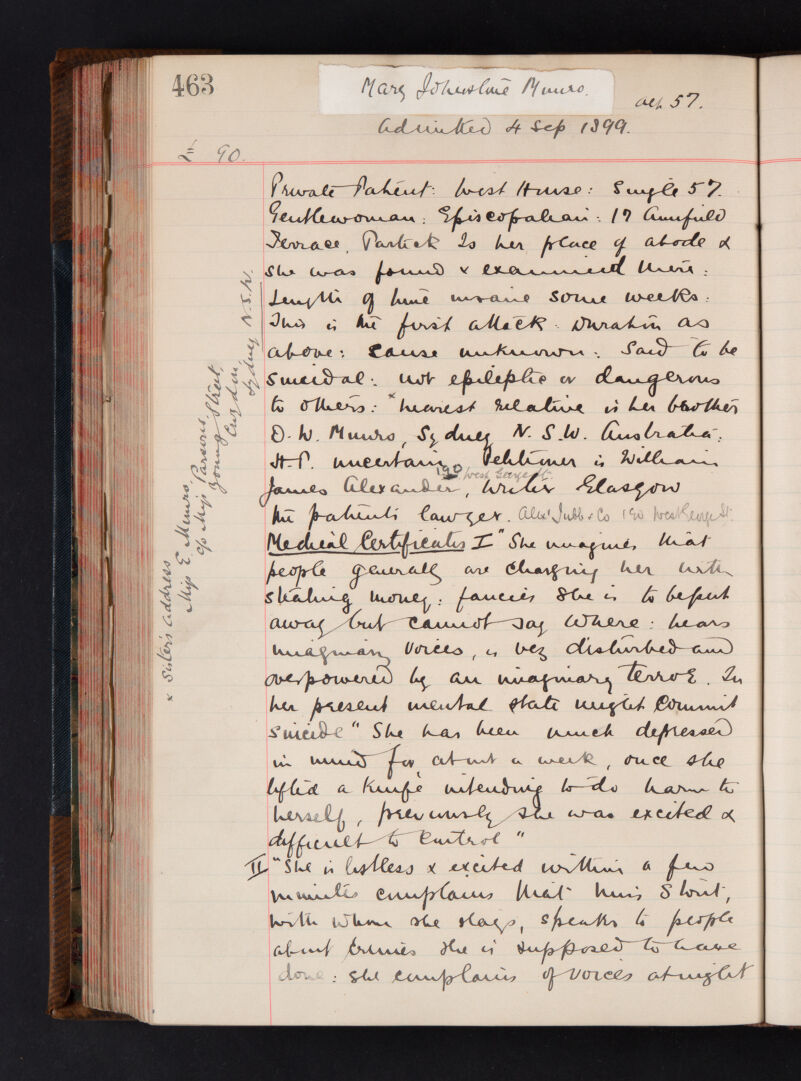 463
Mary Johnstone Munro.
aet. 57.
Admitted 4 Sep 1899.
£ 90.
Private Patient: West House: Single 57.
Gentlewoman: Episcopalian: 17 Annfield
Terrace, Partick Is her place of abode &
she was found & examined there:
Length of time insane some weeks:
This is the first attack: Duration as
above: Cause unknown: Said to be
suicidal: not epileptic or dangerous
to others: × nearest relative is her brother
D. W. Munro, Sydney N. S. W. Australia:
H.P. uncertain Petitioner is William
190 West George St.
James Alexander, Writer Glasgow
the patient's lawyer. Alex Jubb & Co 190 West George St.
Medical Certificates I "She imagines that
people generally are charging her with
stealing money: fancies she is to be put
away but cannot say where: hears
imaginary voices, is very disturbed and
overpowered by an imaginary terror. In
her present mental state might commit
suicide" She has been much depressed
in mind for about a week, once she
lifted a knife intending to do harm to
herself, previously she was excited &
difficult to control"
II "She is listless & excited within a few
minutes complains that Miss Stout,
with whom she stays, speaks to people
about crimes she is supposed to have
done: she complains of voices at night
× Sister's address
Miss E Munro,
c/o Miss Parsons,
Young Street,
Sydney N.S.W.